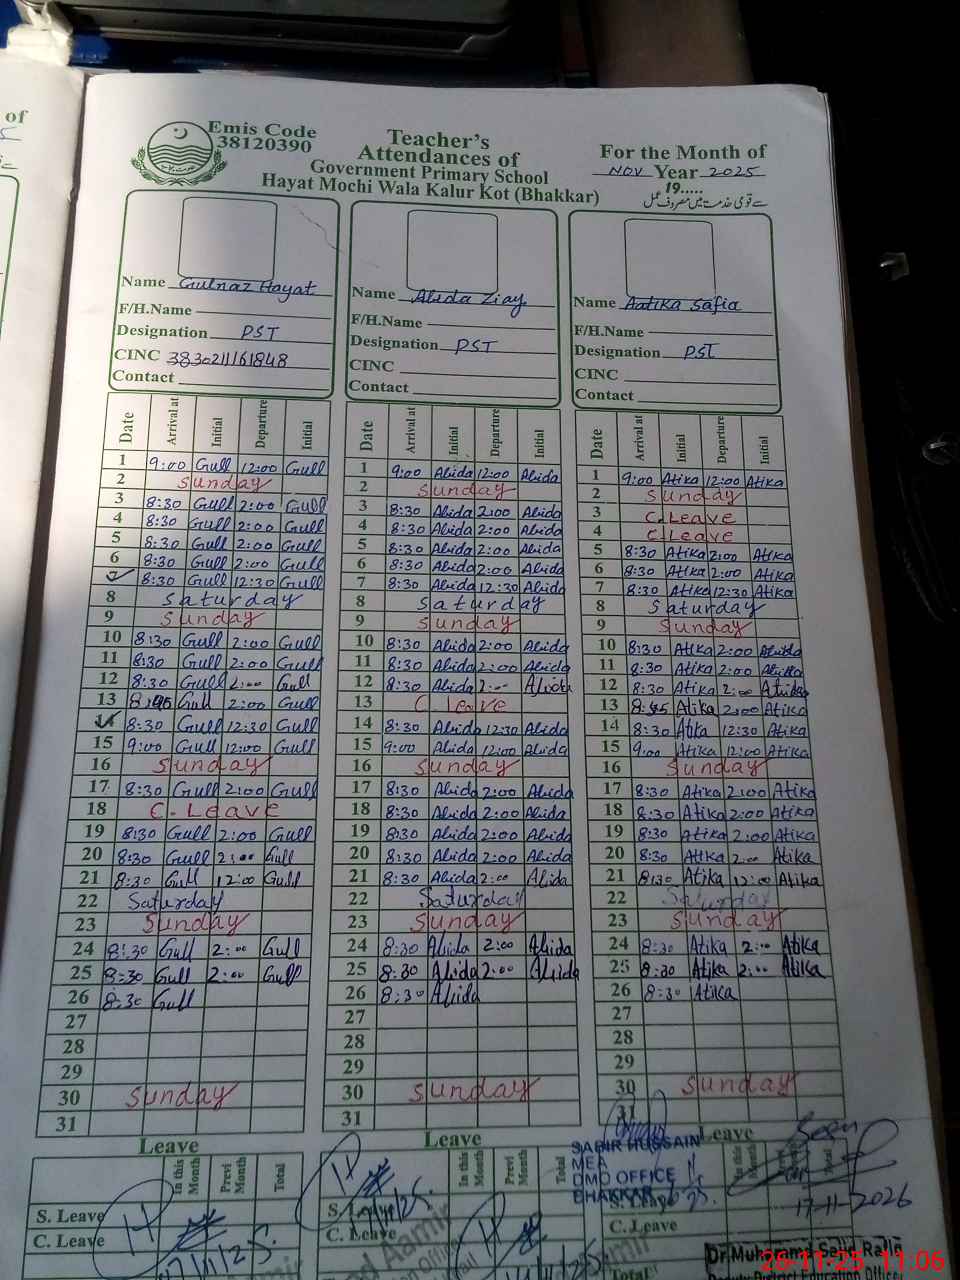 of
Emis Code
38120390
Teacher's
Attendances of
Government Primary School
Hayat Mochi Wala Kalur Kot (Bhakkar)
For the Month of
NOV Year 2025
19.....
سے قومی خدمت میں مصروف عمل
Name Gulnaz Hayat
F/H.Name
Designation PST
CINC 3830211161848
Contact
Name Abida Ziay
F/H.Name
Designation PST
CINC
Contact
Name Aatika Safia
F/H.Name
Designation PST
CINC
Contact
Date Arrival at Initial Departure Initial
1 9:00 Gull 12:00 Gull
2 Sunday
3 8:30 Gull 2:00 Gull
4 8:30 Gull 2:00 Gull
5 8:30 Gull 2:00 Gull
6 8:30 Gull 2:00 Gull
7 8:30 Gull 12:30 Gull
8 Saturday
9 Sunday
10 8:30 Gull 2:00 Gull
11 8:30 Gull 2:00 Gull
12 8:30 Gull 2:00 Gull
13 8:45 Gull 2:00 Gull
14 8:30 Gull 12:30 Gull
15 9:00 Gull 12:00 Gull
16 Sunday
17 8:30 Gull 2:00 Gull
18 C.Leave
19 8:30 Gull 2:00 Gull
20 8:30 Gull 2:00 Gull
21 8:30 Gull 12:00 Gull
22 Saturday
23 Sunday
24 8:30 Gull 2:00 Gull
25 8:30 Gull 2:00 Gull
26 8:30 Gull
27
28
29
30 Sunday
31
Date Arrival at Initial Departure Initial
1 9:00 Abida 12:00 Abida
2 Sunday
3 8:30 Abida 2:00 Abida
4 8:30 Abida 2:00 Abida
5 8:30 Abida 2:00 Abida
6 8:30 Abida 2:00 Abida
7 8:30 Abida 12:30 Abida
8 Saturday
9 Sunday
10 8:30 Abida 2:00 Abida
11 8:30 Abida 2:00 Abida
12 8:30 Abida 2:00 Abida
13 C.leave
14 8:30 Abida 12:30 Abida
15 9:00 Abida 12:00 Abida
16 Sunday
17 8:30 Abida 2:00 Abida
18 8:30 Abida 2:00 Abida
19 8:30 Abida 2:00 Abida
20 8:30 Abida 2:00 Abida
21 8:30 Abida 2:00 Abida
22 Saturday
23 Sunday
24 8:30 Abida 2:00 Abida
25 8:30 Abida 2:00 Abida
26 8:30 Abida
27
28
29
30 Sunday
31
Date Arrival at Initial Departure Initial
1 9:00 Atika 12:00 Atika
2 Sunday
3 C.Leave
4 C.Leave
5 8:30 Atika 2:00 Atika
6 8:30 Atika 2:00 Atika
7 8:30 Atika 12:30 Atika
8 Saturday
9 Sunday
10 8:30 Atika 2:00
11 8:30 Atika 2:00
12 8:30 Atika 2:00
13 8:45 Atika 2:00 Atika
14 8:30 Atika 12:30 Atika
15 9:00 Atika 12:00 Atika
16 Sunday
17 8:30 Atika 2:00 Atika
18 8:30 Atika 2:00 Atika
19 8:30 Atika 2:00 Atika
20 8:30 Atika 2:00 Atika
21 8:30 Atika 12:00 Atika
22 Saturday
23 Sunday
24 8:30 Atika 2:00 Atika
25 8:30 Atika 2:00 Atika
26 8:30 Atika
27
28
29
30 Sunday
31
Leave
In this Month Previ Month Total
S. Leave
C. Leave
Leave
In this Month Previ Month Total
S. Leave
C. Leave
Leave
S. Leave
C. Leave
Total
SABIR HUSSAIN
MEA
DMO OFFICE
BHAKKAR
Seen
17-11-2026
Dr. Muhammad Sajid
Deputy District Education
26-11-25 11:06